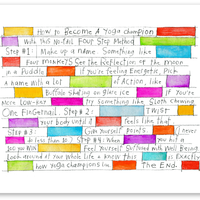 How to Become A Yoga champion
With this No-Fail Four Step Method
Step #1: Make up a name Something like
Four monkeys See the Reflection of the moon
in a Puddle If you're feeling Energetic, Pick
a name with a lot of Action, like
Buffalo Skating on glass ice If you're
More Low-key try Something like Sloth Chewing
One Fingernail. Step #2: TWIST
Your body until it feels like that
Step #3: Give yourself Points (never
less than 10.) Step #4: When you
You win Feel yourself Suffused with Well Being.
Look around at your whole life & know this is Exactly
how yoga champions The End.